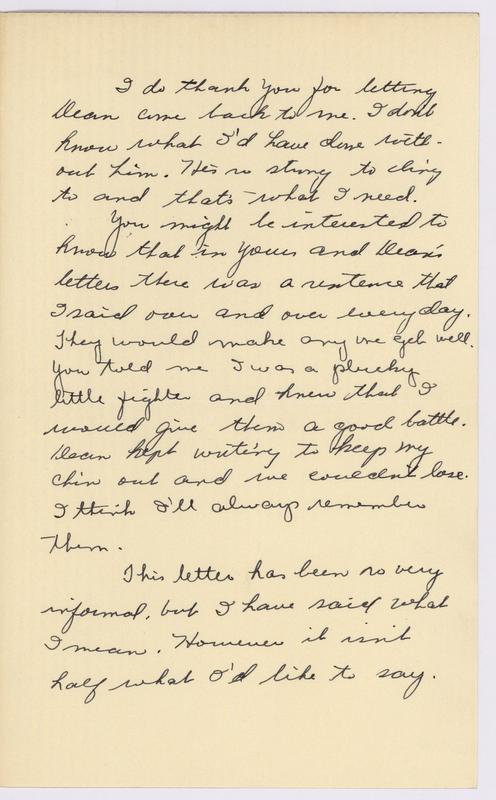 I do thank you for letting
Dean come back to me. I dont
know what I'd have done with-
out him. He's so strong to cling
to and thats what I need.
You might be interested to
know that in yours and Dean's
letters there was a sentence that
I said over and over everyday.
They would make any one get well.
You told me I was a plucky
little fighter and knew that I
would give them a good battle.
Dean kept writing to keep my
chin out and we couldn't lose.
I think I'll always remember
them.
This letter has been so very
informal, but I have said what
I mean. However it isn't
half what I'd like to say.